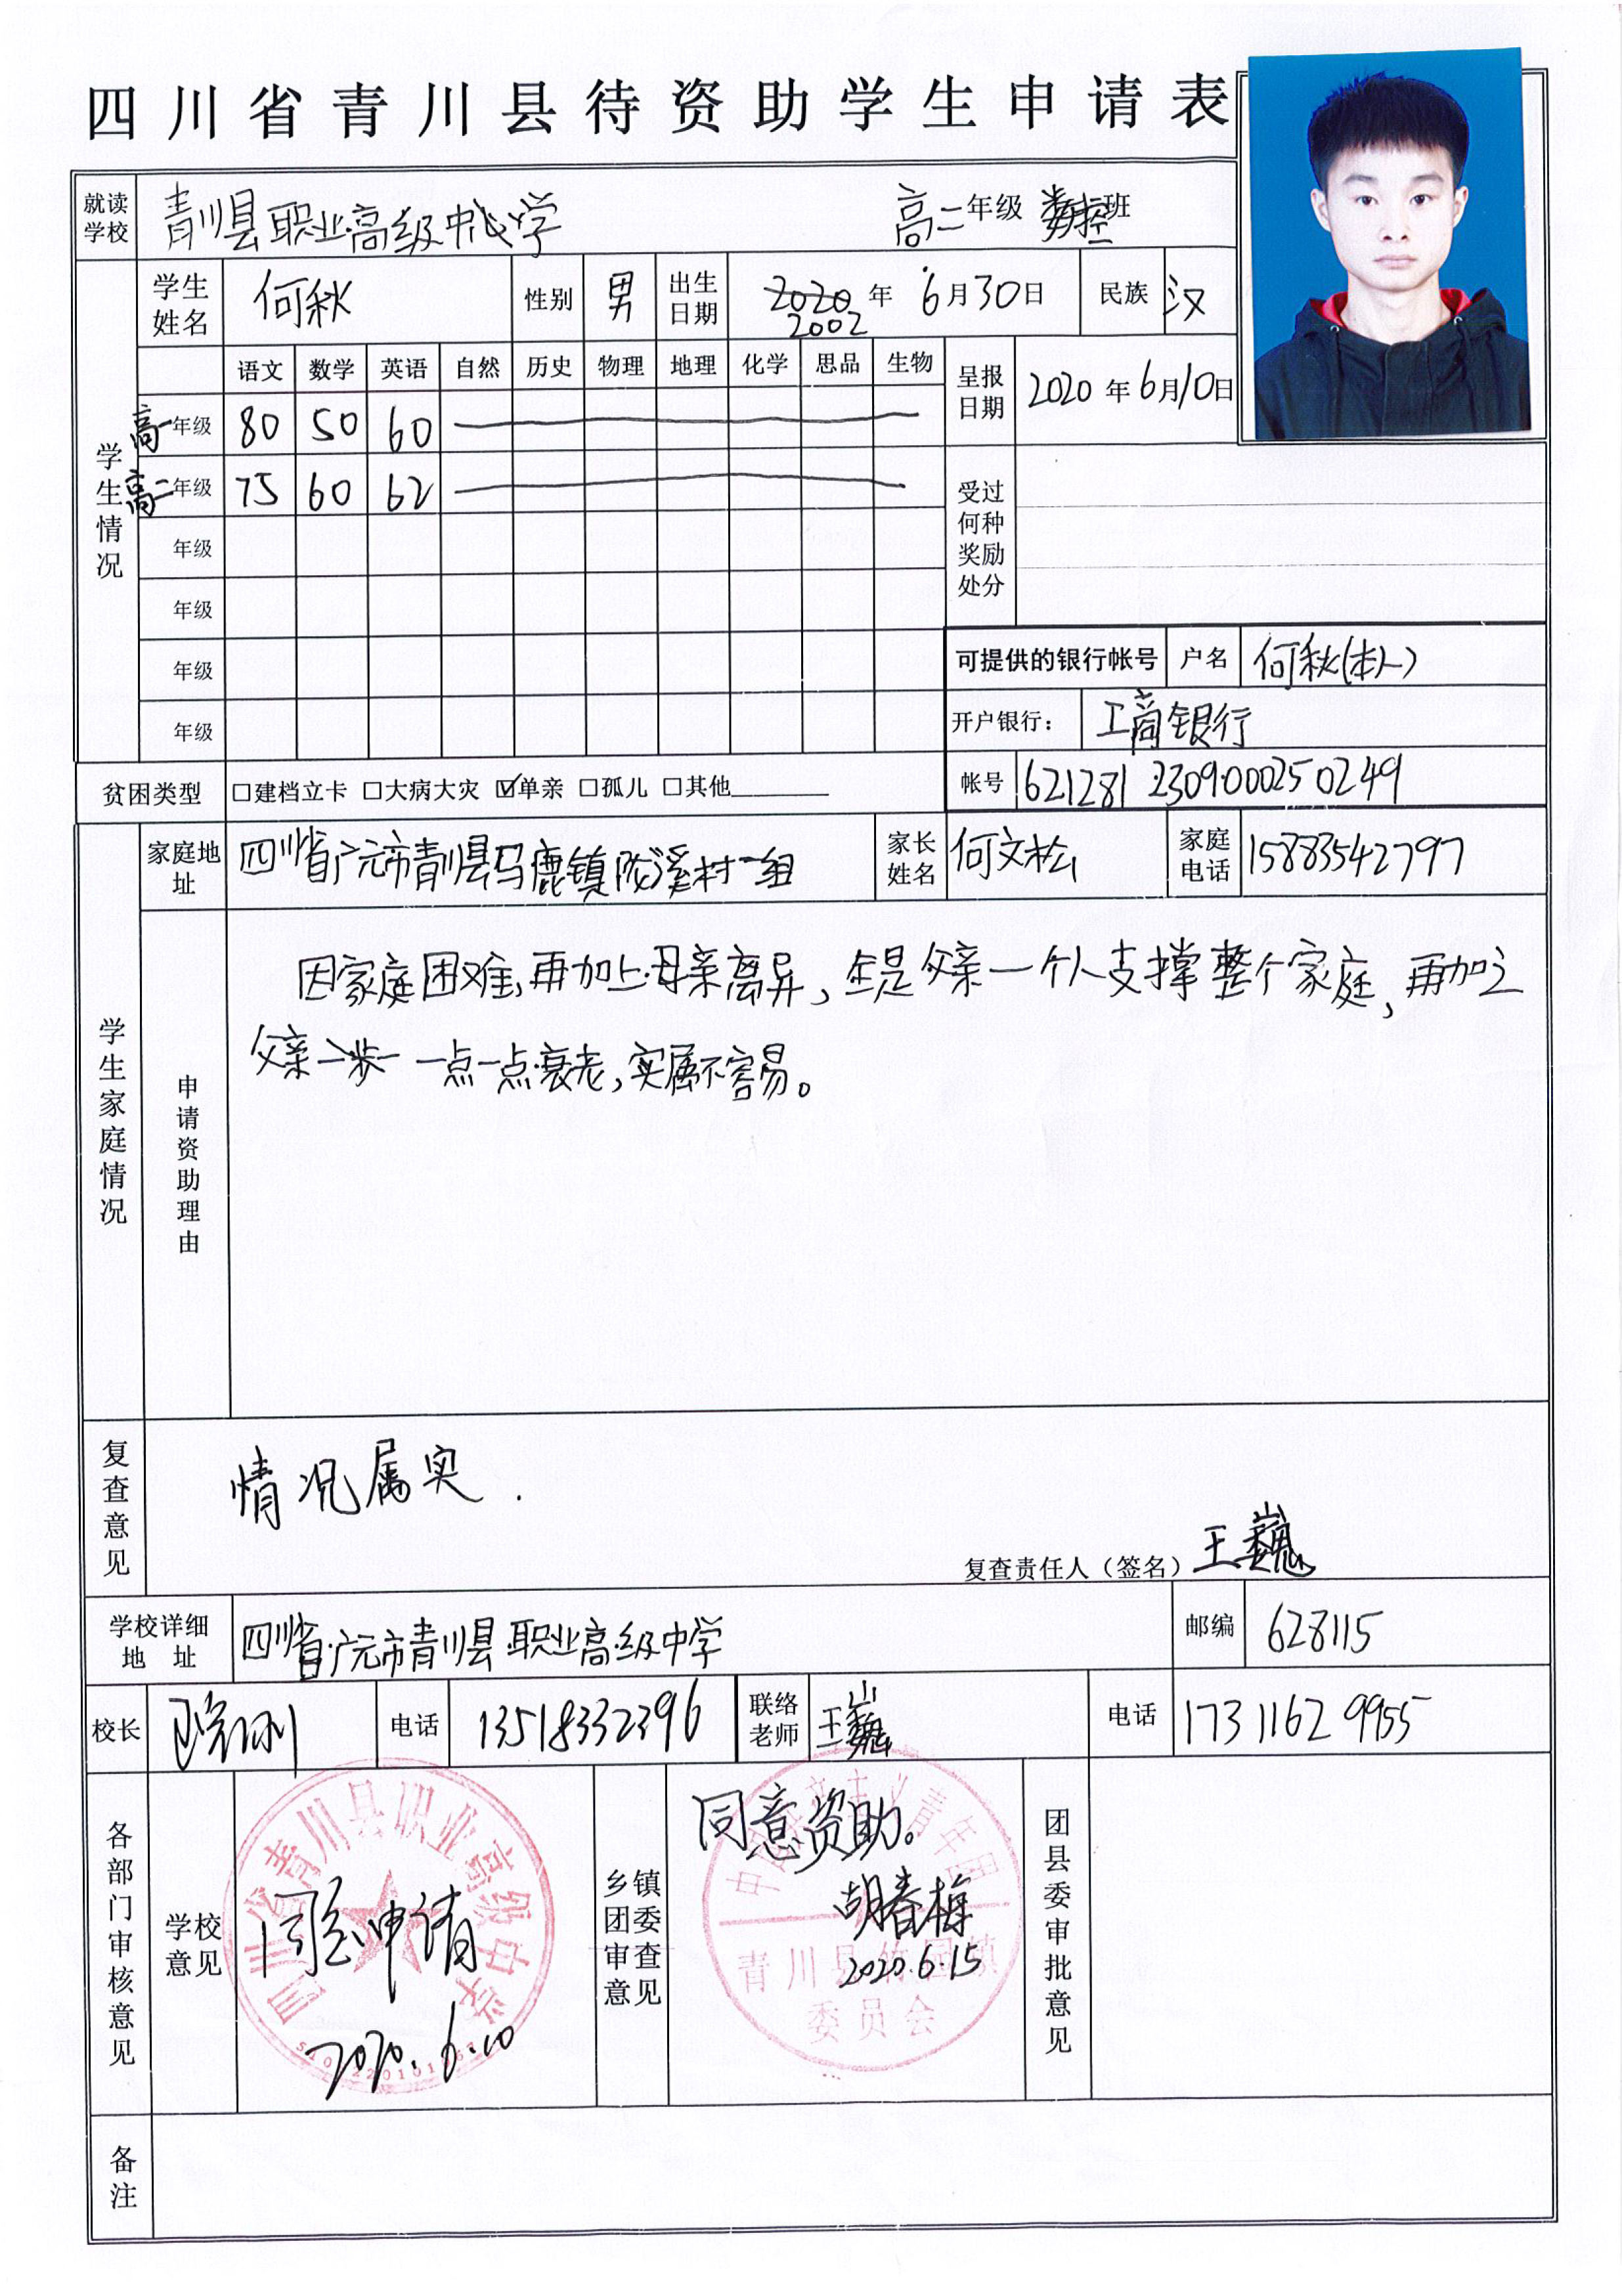 四川省青川县待资助学生申请表
就读学校 青川县职业高级中学 高二年级 数控班
学生姓名 何秋 性别 男 出生日期 2002年6月30日 民族 汉
学生情况
语文 数学 英语 自然 历史 物理 地理 化学 思品 生物 呈报日期 2020年6月10日
高一年级 80 50 60
高二年级 75 60 62
受过何种奖励处分
年级
年级
年级 可提供的银行帐号 户名 何秋(本人)
年级 开户银行： 工商银行
贫困类型 □建档立卡 □大病大灾 ☑单亲 □孤儿 □其他________ 帐号 621281 2309000250249
学生家庭情况
家庭地址 四川省广元市青川县马鹿镇陇溪村一组 家长姓名 何文松 家庭电话 15883542797
申请资助理由
因家庭困难,再加上母亲离异,全是父亲一个人支撑整个家庭,再加之
父亲一点一点衰老,实属不容易。
复查意见 情况属实.
复查责任人（签名）王巍
学校详细地址 四川省广元市青川县职业高级中学 邮编 628115
校长 电话 13518332396 联络老师 王巍 电话 17311629955
各部门审核意见
学校意见 同意申请
2020.6.10
四川省青川县职业高级中学
乡镇团委审查意见 同意资助。
胡春梅
2020.6.15
中国共产主义青年团
青川县竹园镇
委员会
团县委审批意见
备注